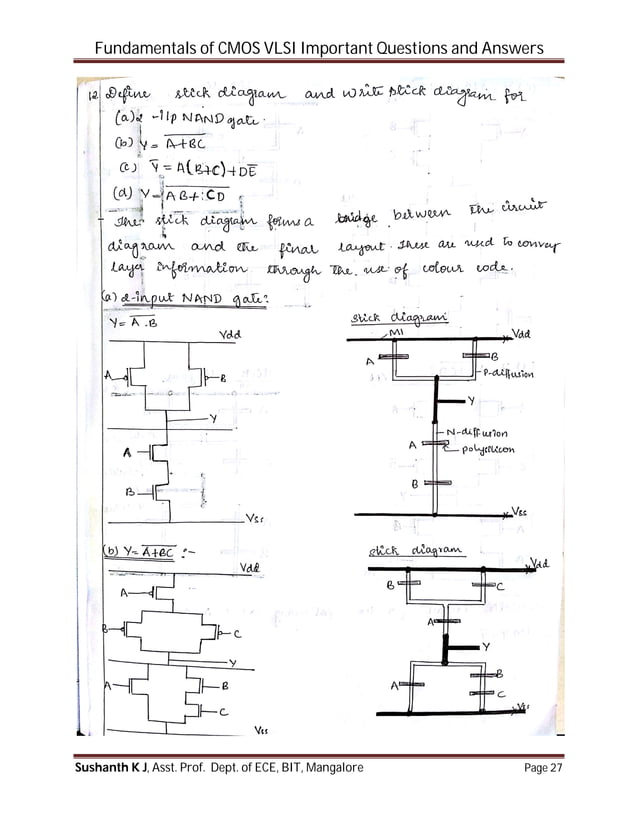 Fundamentals of CMOS VLSI Important Questions and Answers
12 Define stick diagram and write stick diagram for
(a) 2 -I/p NAND gate.
(b) Y = A̅+̅B̅C̅
(c) Y̅ = A(B+C)+DE̅
(d) Y = A̅B̅+̅C̅D̅
The stick diagram forms a bridge between the circuit
diagram and the final layout. These are used to convey
layer information through the use of colour code.
(a) 2-input NAND gate:
Y= A̅.̅B̅
stick diagram
Vdd
M1
Vdd
A
B
A
B
P-diffusion
Y
Y
A
N-diffusion
A
polysilicon
B
B
Vss
Vss
(b) Y= A̅+̅B̅C̅ :-
stick diagram
Vdd
Vdd
A
B
C
B
C
A
Y
Y
A
B
A
B
C
C
Vss
Vss
Sushanth K J, Asst. Prof. Dept. of ECE, BIT, Mangalore
Page 27